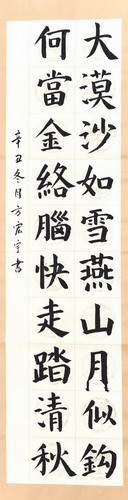 大漠沙如雪燕山月似鈎
何當金絡腦快走踏清秋
辛丑冬月方宏亨書